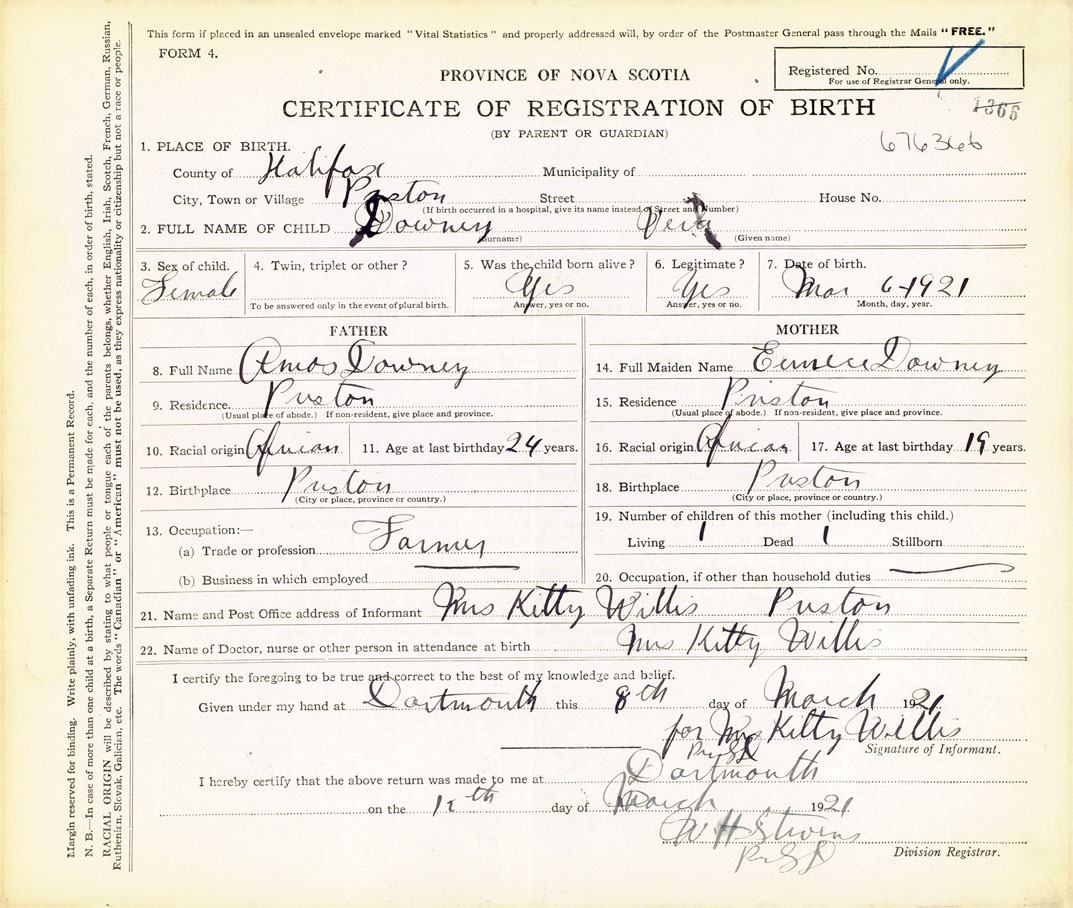 This form if placed in an unsealed envelope marked "Vital Statistics" and properly addressed will, by order of the Postmaster General pass through the Mails "FREE."
FORM 4.
Registered No.
For use of Registrar General only.
PROVINCE OF NOVA SCOTIA
CERTIFICATE OF REGISTRATION OF BIRTH
1366
(BY PARENT OR GUARDIAN)
676366
1. PLACE OF BIRTH.
County of Halifax Municipality of
City, Town or Village Preston Street House No.
(If birth occurred in a hospital, give its name instead of Street and Number)
2. FULL NAME OF CHILD Downey
(Surname) (Given name)
3. Sex of child. 4. Twin, triplet or other? 5. Was the child born alive? 6. Legitimate? 7. Date of birth.
Female Yes Yes Mar 6-1921
To be answered only in the event of plural birth. Answer, yes or no. Answer, yes or no. Month, day, year.
FATHER
8. Full Name Amos Downey
9. Residence. Preston
(Usual place of abode.) If non-resident, give place and province.
10. Racial origin African 11. Age at last birthday 24 years.
12. Birthplace Preston
(City or place, province or country.)
13. Occupation:—
(a) Trade or profession Farmer
(b) Business in which employed
MOTHER
14. Full Maiden Name Downey
15. Residence Preston
(Usual place of abode.) If non-resident, give place and province.
16. Racial origin African 17. Age at last birthday 19 years.
18. Birthplace Preston
(City or place, province or country.)
19. Number of children of this mother (including this child.)
Living 1 Dead 1 Stillborn
20. Occupation, if other than household duties
21. Name and Post Office address of Informant Mrs Kitty Willis Preston
22. Name of Doctor, nurse or other person in attendance at birth Mrs Kitty Willis
I certify the foregoing to be true and correct to the best of my knowledge and belief.
Given under my hand at Dartmouth this 8th day of March 1921
for Mrs Kitty Willis
Signature of Informant.
I hereby certify that the above return was made to me at Dartmouth
on the 12th day of March 1921
W H Stevens
Division Registrar.
Margin reserved for binding. Write plainly, with unfading ink. This is a Permanent Record.
N. B.—In case of more than one child at a birth, a Separate Return must be made for each, and the number of each, in order of birth, stated.
RACIAL ORIGIN will be described by stating to what people or tongue each of the parents belongs, whether English, Irish, Scotch, French, German, Russian,
Ruthenian, Slovak, Galician, etc. The words "Canadian" or "American" must not be used, as they express nationality or citizenship but not a race or people.